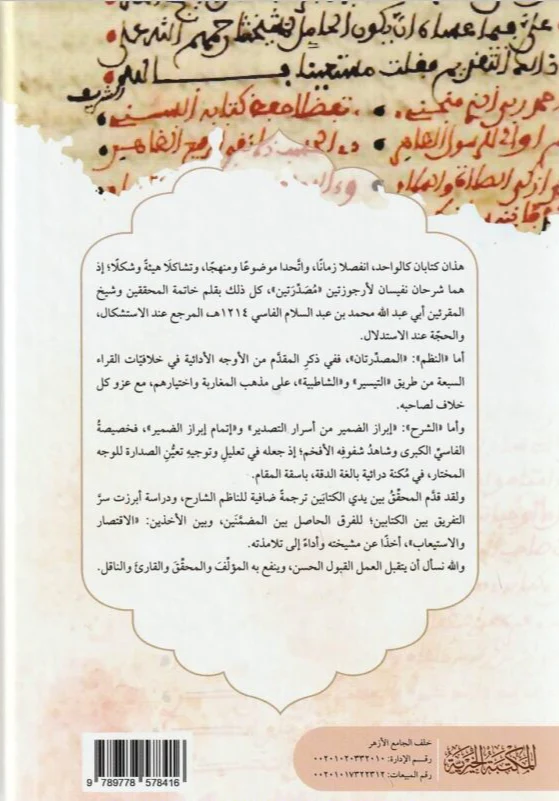 هذان كتابان كالواحد، انفصلا زمانًا، واتَّحدا موضوعًا ومنهجًا، وتشاكلَا هيئةً وشكلًا؛ إذ
هما شرحان نفيسان لأرجوزتين «مُصَدِّرَتين»، كل ذلك بقلم خاتمة المحققين وشيخ
المقرئين أبي عبد الله محمد بن عبد السلام الفاسي ١٢١٤هـ، المرجع عند الاستشكال،
والحجَّة عند الاستدلال.
أما «النظم»: «المصدِّرتان»، ففي ذكرِ المقدَّم من الأوجه الأدائية في خلافيَّات القراء
السبعة من طريق «التيسير» و«الشاطبية»، على مذهب المغاربة واختيارهم، مع عزو كل
خلاف لصاحبه.
وأما «الشرح»: «إبراز الضمير من أسرار التصدير» و«إتمام إبراز الضمير»، فخصيصةُ
الفاسيِّ الكبرى وشاهدُ شفوفِه الأفخم؛ إذ جعله في تعليلِ وتوجيهِ تعيُّنِ الصدارة للوجه
المختار، في مُكنة درائية بالغة الدقة، باسقة المقام.
ولقد قدَّم المحقِّقُ بين يدي الكتابَين ترجمةً ضافية للناظم الشارح، ودراسة أبرزت سرَّ
التفريق بين الكتابين؛ للفرق الحاصل بين المضمَّنَين، وبين الأخذين: «الاقتصار
والاستيعاب»، أخذًا عن مشيخته وأداءً إلى تلامذته.
والله نسأل أن يتقبل العمل القبول الحسن، وينفع به المؤلِّفَ والمحقِّقَ والقارئَ والناقل.
خلف الجامع الأزهر
رقـم الإدارة: ٠٠٢٠١٠٢٠٣٣٢٠١٠
رقم المبيعات: ٠٠٢٠١٠١٧٣٢٢٣١٢
المكتبة الخيرية
9 789778 578416